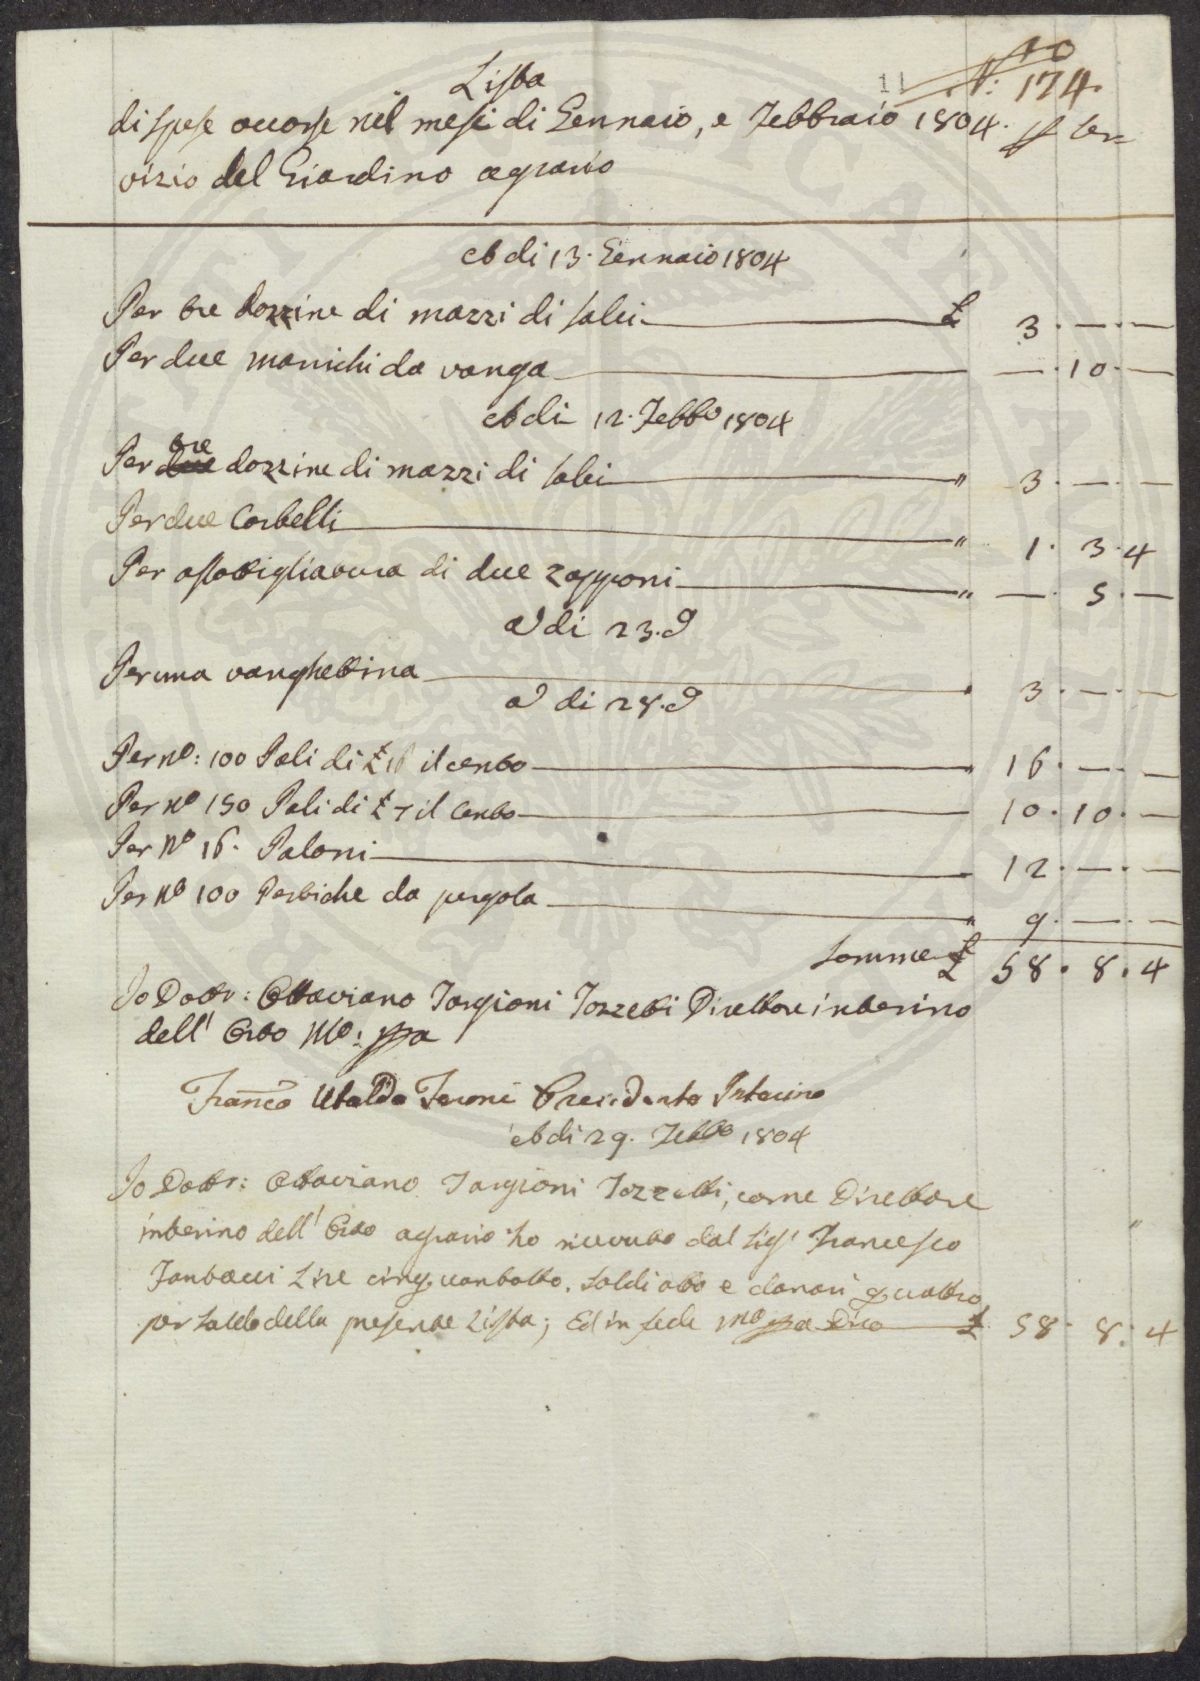 10
11 N: 174.
Lista
di spese occorse nel mesi di Gennaio, e Febbraio 1804. p ser-
vizio del Giardino agrario
A di 13. Gennaio 1804
Per tre dozzine di mazzi di salci £ 3. — . —
Per due manichi da vanga — . 10 . —
A di 12. Febb.o 1804
Per due tre dozzine di mazzi di salci " 3. — . —
Per due Corbelli " 1. 3. 4
Per assottigliatura di due zapponi " — . 5 . —
A di 23. d
Per una vanghettina 3. — . —
A di 28. d
Per n.o: 100 Pali di £ 16 il cento 16. — . —
Per N.o 150 Pali di £ 7 il cento 10. 10. —
Per N.o 16. Paloni 12. — . —
Per N.o 100 Pertiche da pergola " 9. — . —
Somma £ 58. 8. 4
Io Dottr: Ottaviano Targioni Tozzetti Direttore interino
dell' Orto M.o: ppa
Franc.o Ubaldo Feroni Presidente Interino
A di 29. Febb.o 1804
Io Dottr: Ottaviano Targioni Tozzetti, come Direttore
interino dell' Orto agrario ho ricevuto dal Sig.r Francesco
Tantacci Lire cinquantotto. soldi otto e denari quattro
per saldo della presente Lista; Ed in fede M.o ppa Dico £ 58. 8. 4